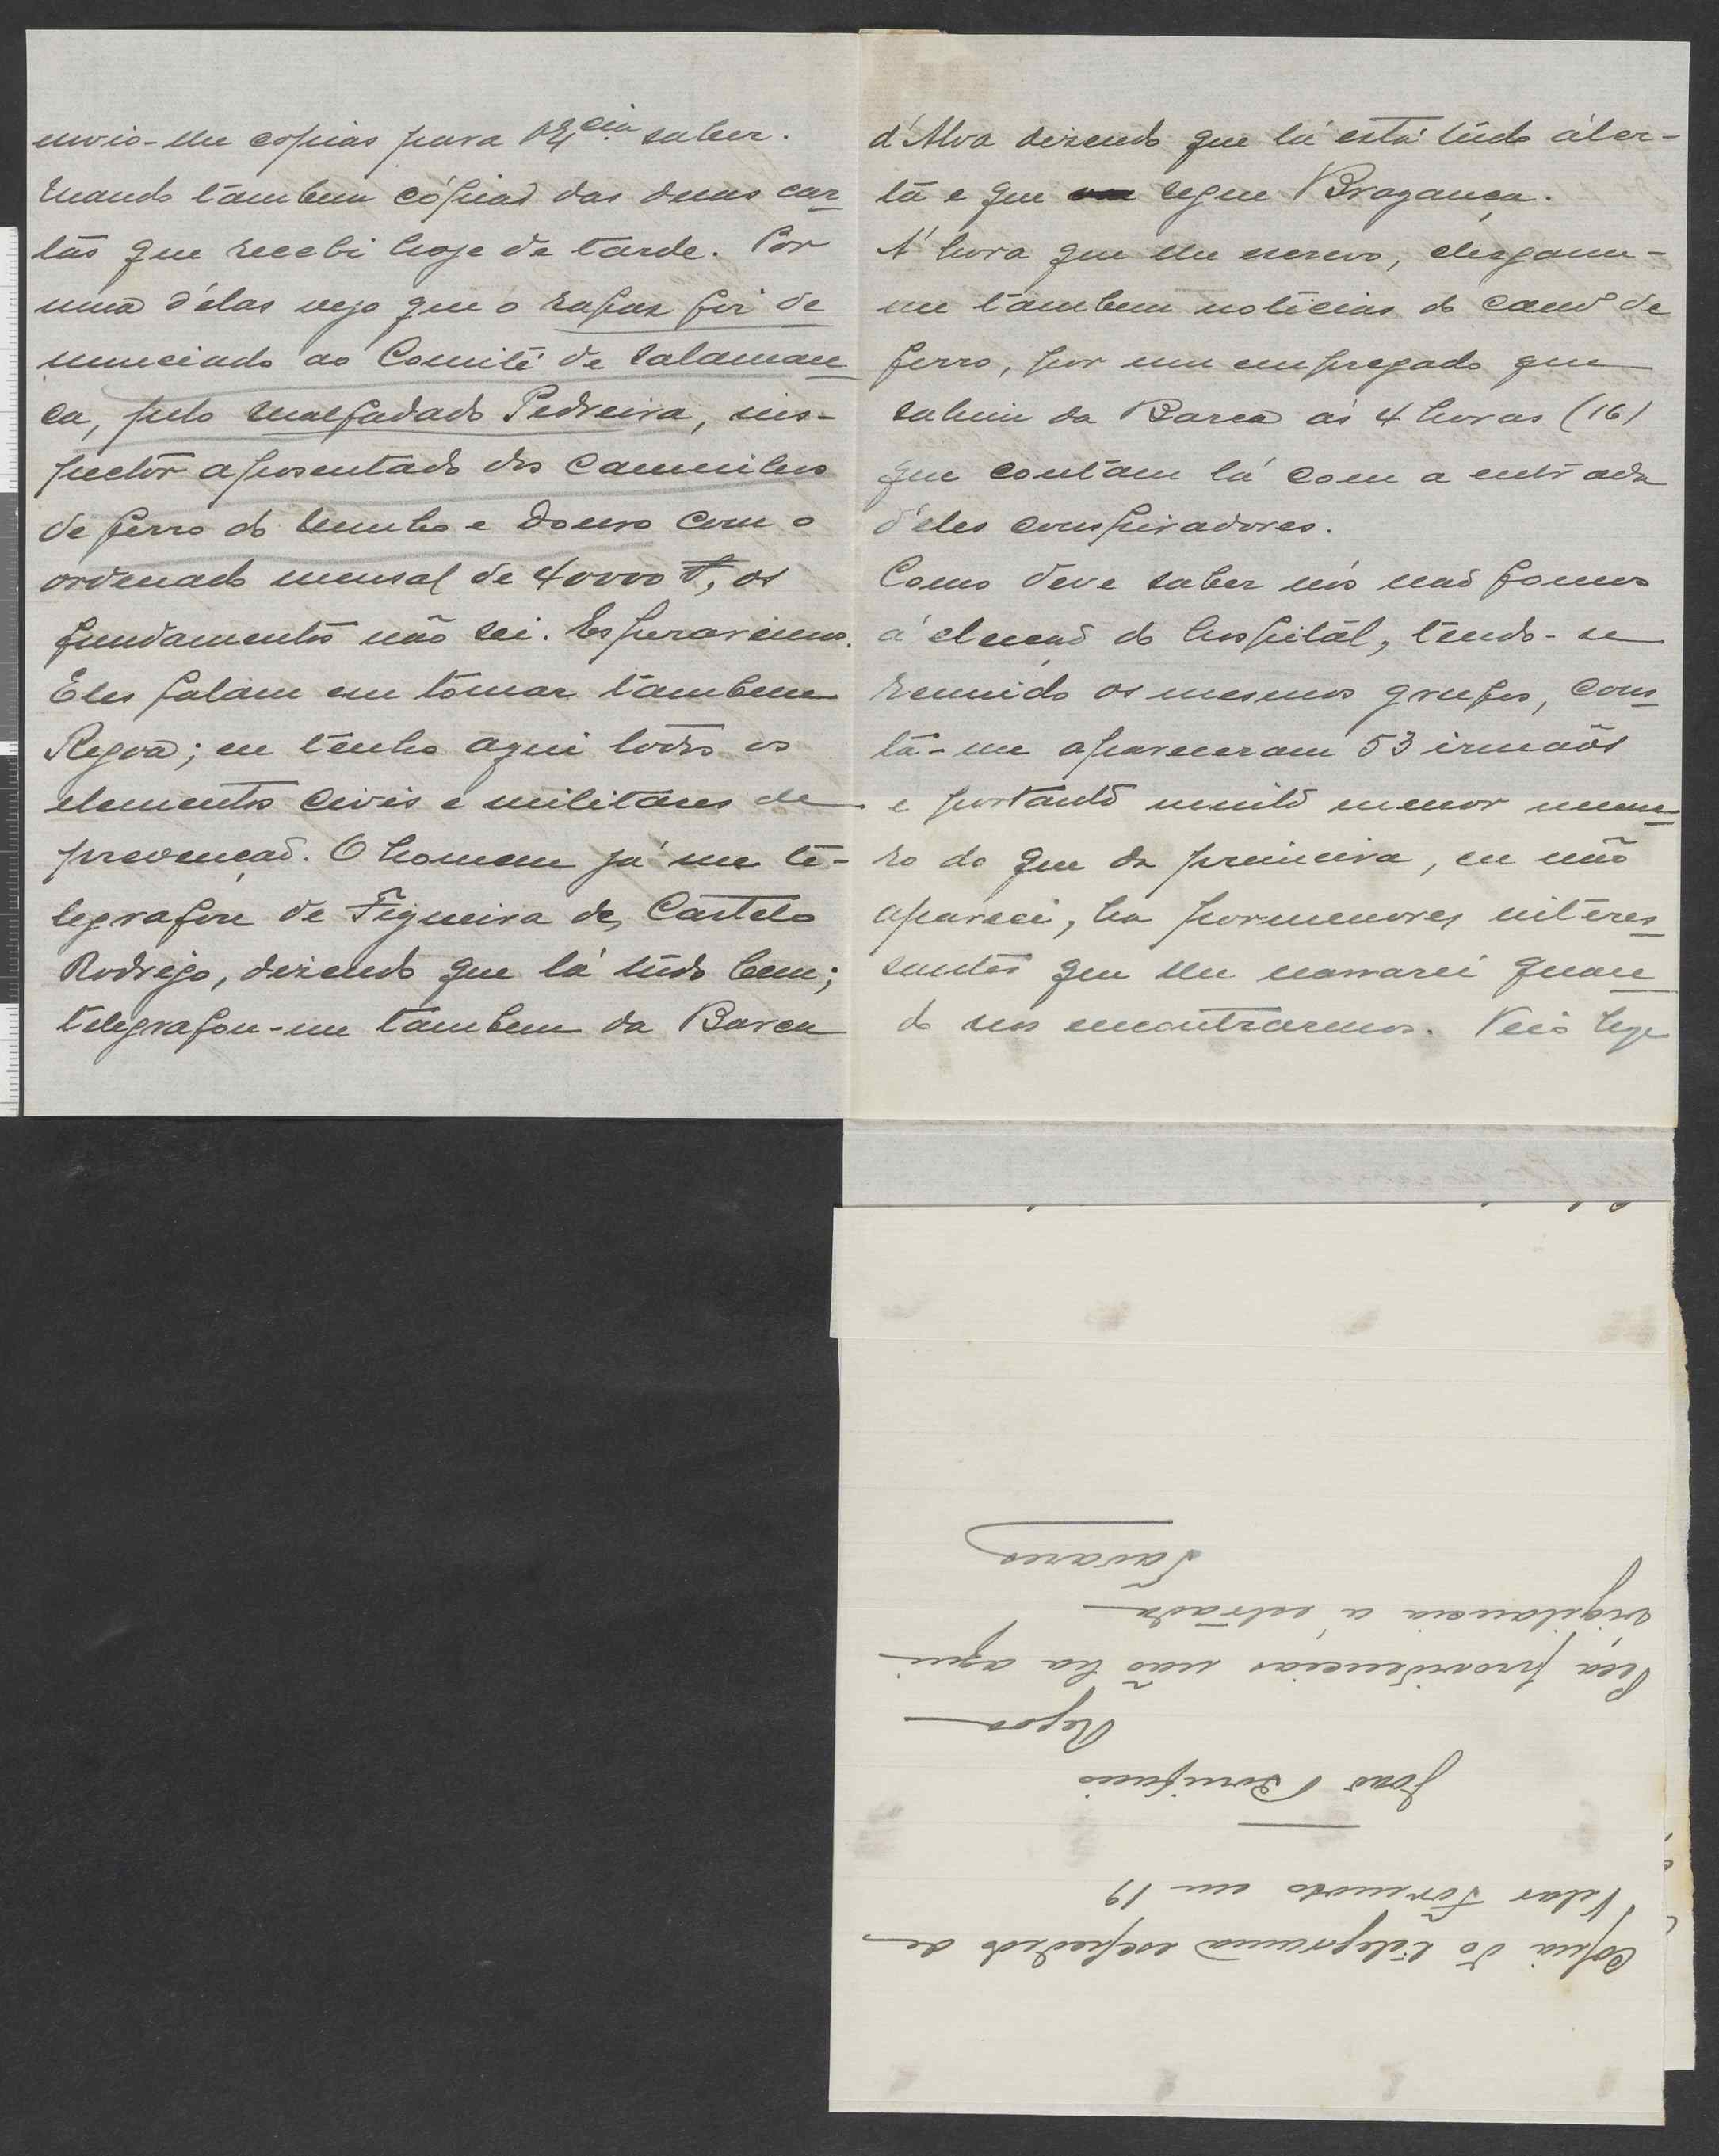 envio-lhe copias para V. Ex.cia saber.
Mando tambem cópias das duas car
tas que recebi hoje de tarde. Por
uma d'elas vejo que o rapaz foi de
nunciado ao Comité de Salaman
ca, pelo malfadado Pedreira, ins-
pector aposentado dos caminhos
de ferro do Minho e Douro com o
ordenado mensal de 40000 rs, os
fundamentos não sei. Esperaremos.
Eles falam em tomar tambem
Regoa; eu tenho aqui todos os
elementos civis e militares de
prevenção. O homem já me te-
legrafou de Figueira de Castelo
Rodrigo, dizendo que lá tudo bem;
telegrafou-me tambem da Barca
d'Alva dizendo que lá está tudo áler-
ta e que segue Bragança.
A' hora que lhe escrevo, chegam-
me tambem noticias do camº de
ferro, por um empregado que
sahiu da Barca ás 4 horas (16)
que contam lá com a entrada
d'eles conspiradores.
Como deve saber nós não fomos
á eleição do hospital, tendo-se
reunido os mesmos grupos, cons
ta-me apareceram 53 irmãos
e portanto muito menor nume
ro do que da primeira, eu não
apareci, ha pormenores interes
santes que lhe narrarei quan
do nos encontraremos. Veio hoje
Copia do telegrama expedido de
Vilar Formoso em 19
João Bonifacio
Regoa
Peça providencias não ha aqui
vigilancia á estrada
Tavares